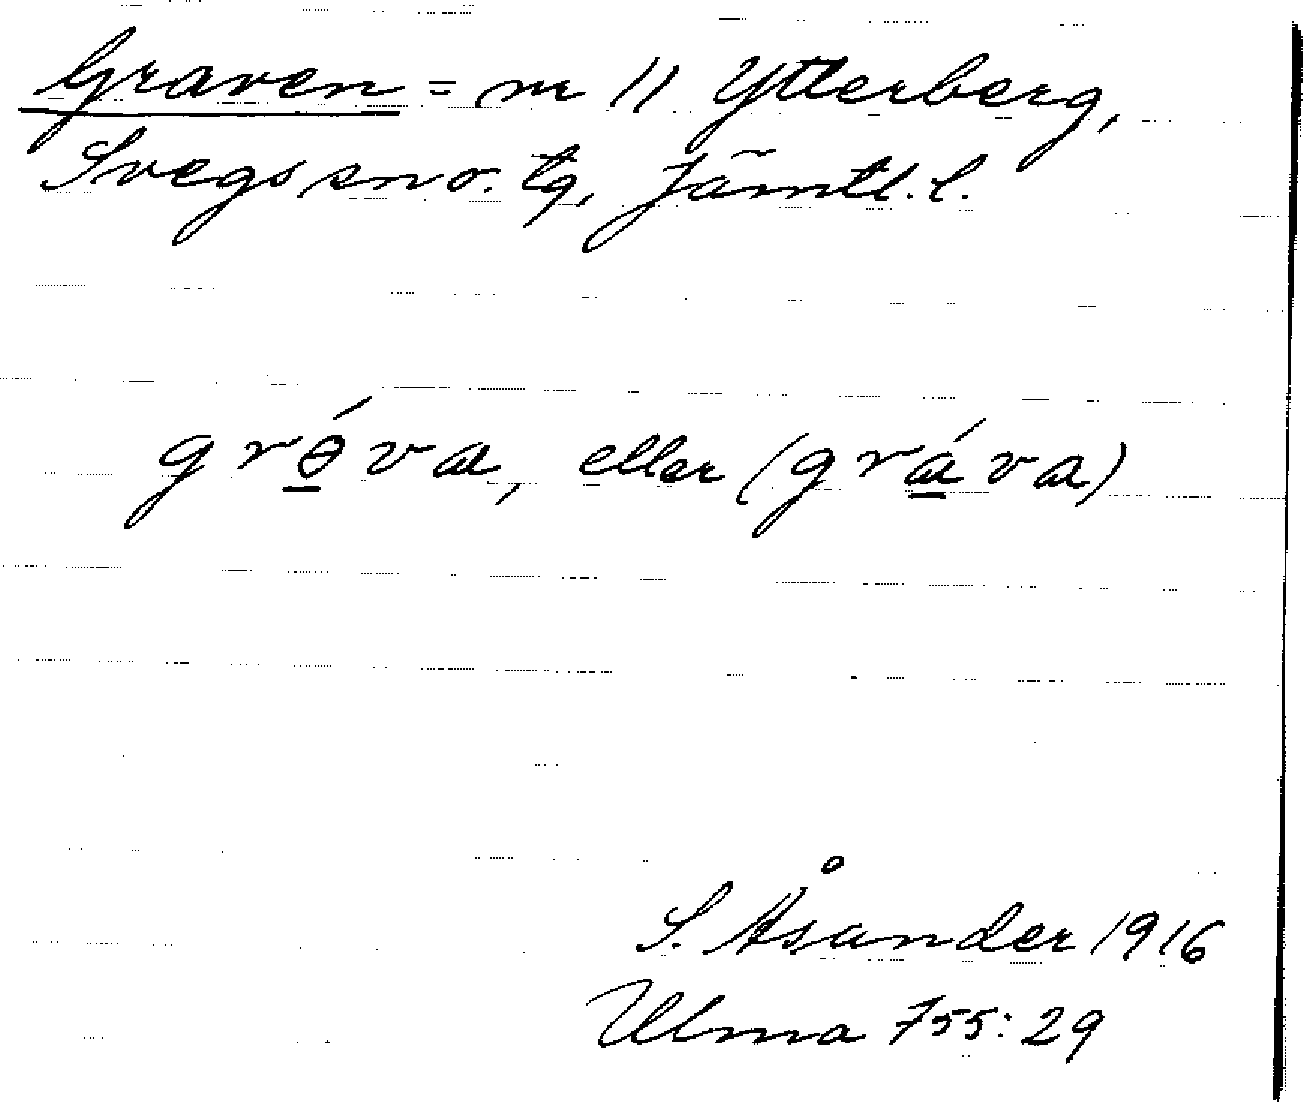 Graven = m 11 Ytterberg,
Svegs sn o. tg, Jämtl. l.
grɵ́va, eller (gráva)
S. Åsander 1916
Ulma 755:29